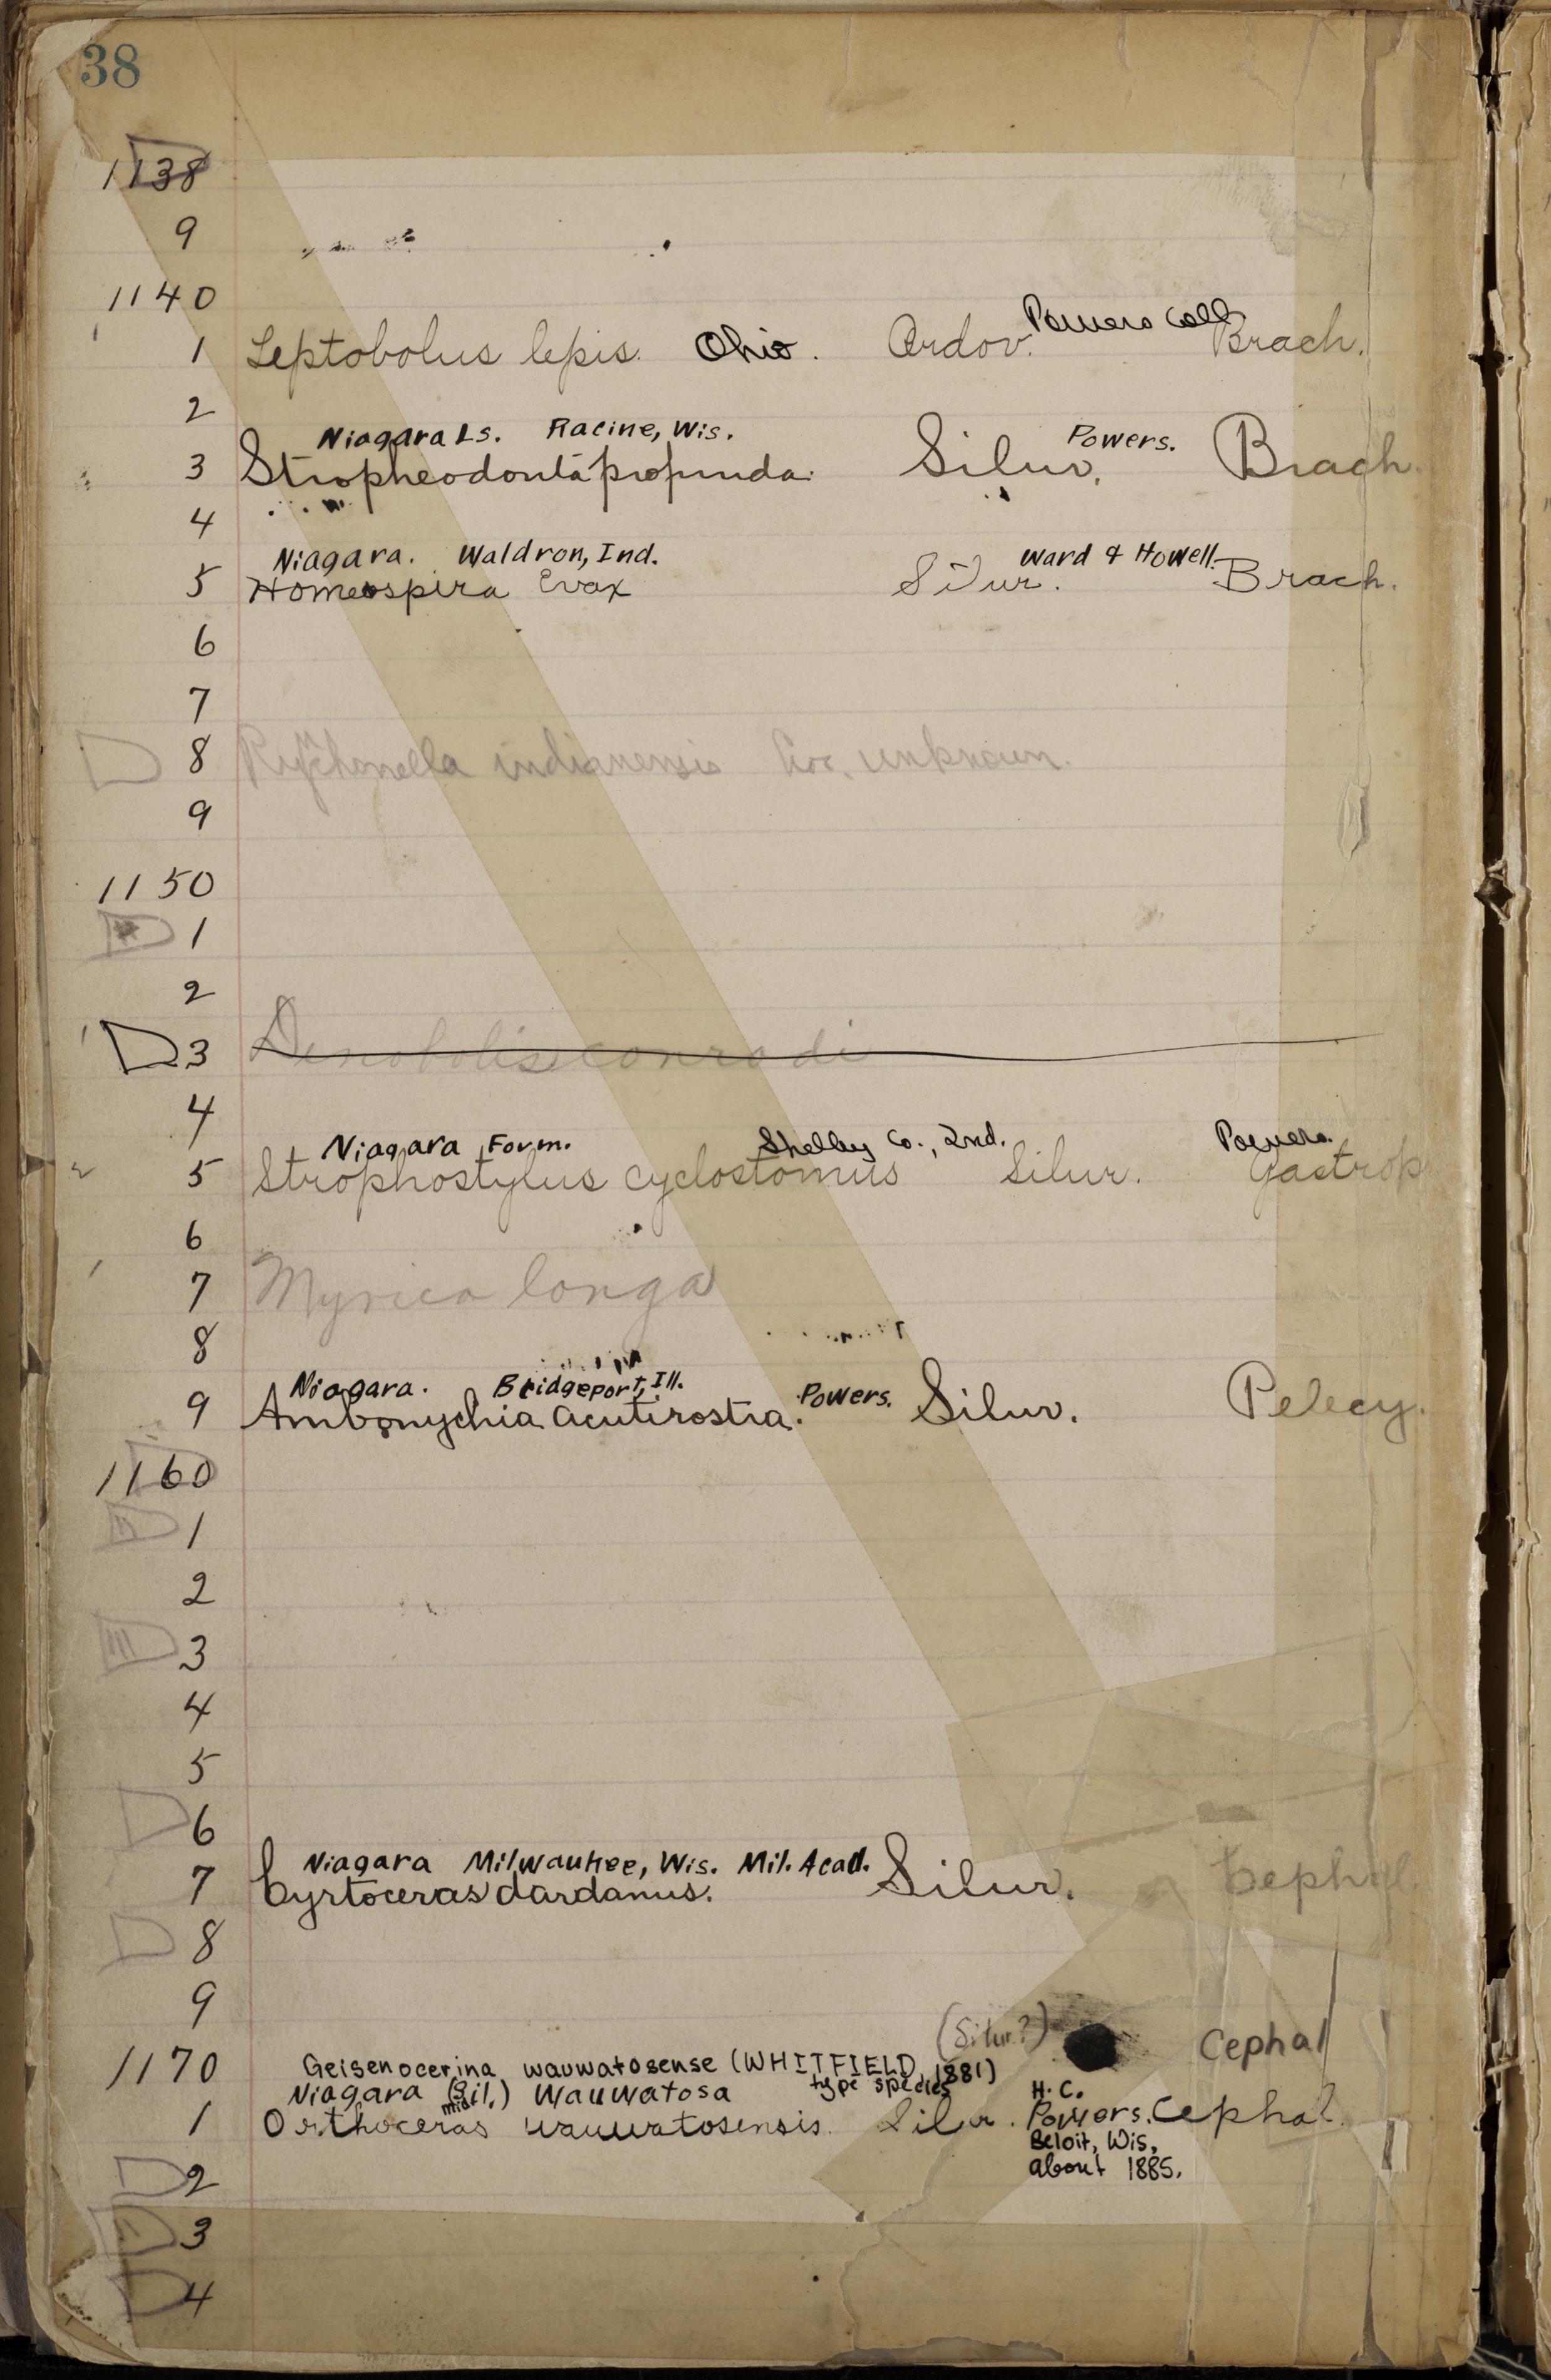 38
1138
9
1140
Powers Coll
1 Leptobolus lepis. Ohio. Ordov. Brach.
2
Niagara Ls. Racine, Wis. Powers.
3 Stropheodonta profunda. Silur. Brach.
4
Niagara. Waldron, Ind. Ward & Howell.
5 Homeospira Evax Silur. Brach.
6
7
8 indianensis Loc. unknown.
9
1150
1
2
3 Dinobolis conradi
4
Niagara Form. Shelby Co., Ind. Powers.
5 Strophostylus cyclostomus Silur. Gastrop
6
7 Myrica longa
8
Niagara. Bridgeport, Ill. Powers.
9 Ambonychia acutirostra. Silur. Pelecy.
1160
1
2
3
4
5
6
Niagara Milwaukee, Wis. Mil. Acad.
7 Cyrtoceras dardanus. Silur. Cephal.
8
9
(Silur.?) Cephal
1170 Geisenocerina wauwatosense (WHITFIELD, 1881)
type species
Niagara (mid Sil.) Wauwatosa H. C.
1 Orthoceras wauwatosensis. Silur. Powers. Cephal.
Beloit, Wis.
2 about 1885.
3
4